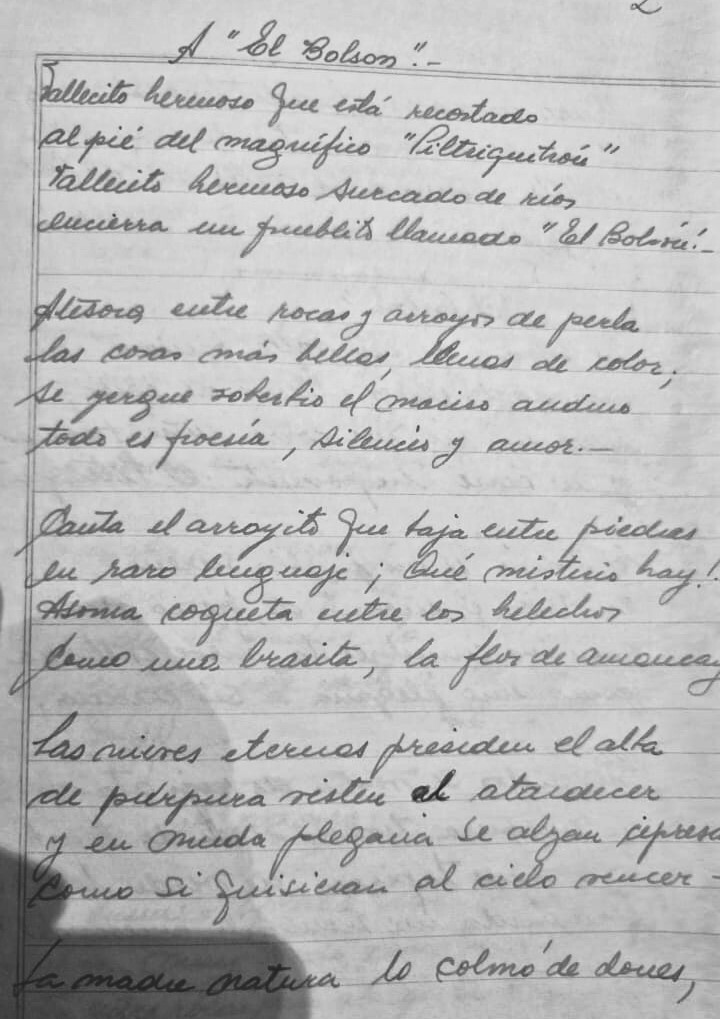 2
A "El Bolson".-
Vallecito hermoso que está recostado
al pié del magnífico "Piltriquitrón"
Vallecito hermoso surcado de ríos
encierra un pueblito llamado "El Bolsón".-
Atesora entre rocas y arroyos de perla
las cosas más bellas, llenas de color;
se yergue soberbio el maciso andino
todo es poesía, silencio y amor.-
Canta el arroyito que baja entre piedras
en raro lenguaje ¡Qué misterio hay!
Asoma coqueta entre los helechos
como una brasita, la flor de amancay
Las nieves eternas presiden el alba
de púrpura visten al atardecer
y en muda plegaria se alzan cipreses
como si quisieran al cielo vencer -
La madre natura lo colmó de dones,